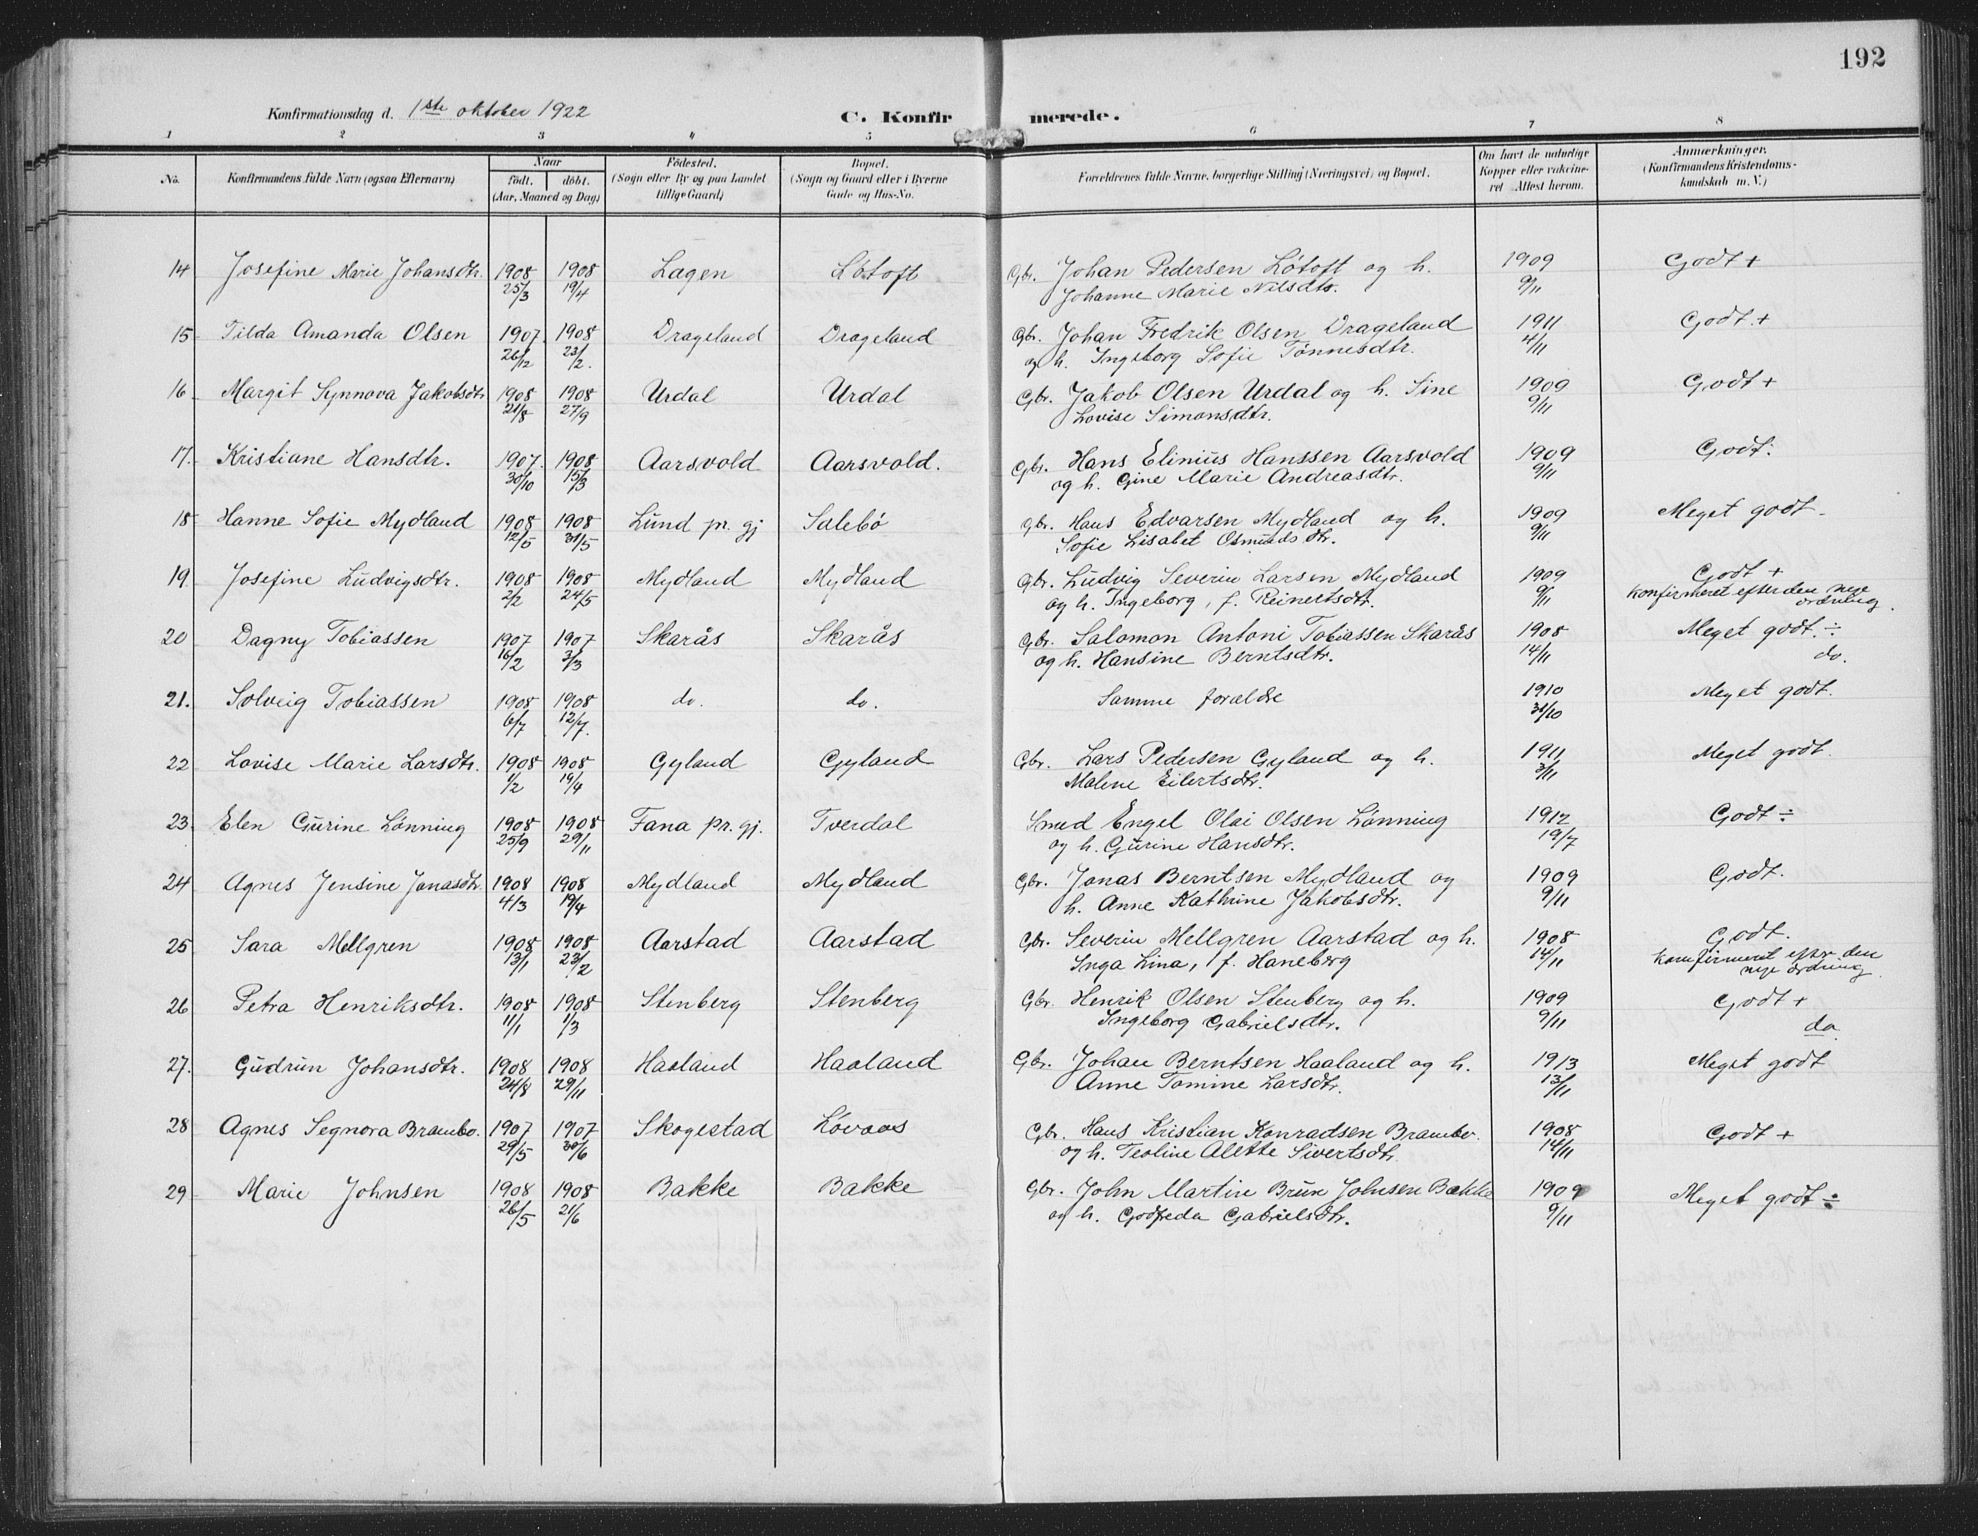 192
Konfirmationsdag d. 1ste oktober 1922
C. Konfirmerede.
1 2 3 4 5 6 7 8
No. Konfirmandens fulde Navn (ogsaa Efternavn) Naar født. døbt. (Aar, Maaned og Dag) Fødested. (Sogn eller By og paa Landet tillige Gaard) Bopæl. (Sogn og Gaard eller i Byerne Gade og Hus-No. Forældrenes fulde Navne, borgerlige Stilling (Næringsvei) og Bopæl. Om havt de naturlige Kopper eller vakcineret Attest herom. Anmærkninger. (Konfirmandens Kristendomskundskab m. V.)
14 Josefine Marie Johansdtr. 1908 25/3 1908 19/4 Lagen Løtoft Gbr. Johan Pedersen Løtoft og h. 1909 9/11 Godt +
Johanne Marie Nilsdtr.
15 Tilda Amanda Olsen 1907 26/12 1908 23/2. Drageland Drageland Gbr. Johan Fredrik Olsen Drageland 1911 4/11 Godt. +
og h. Ingeborg Sofie Tønnesdtr.
16 Margit Synnova Jakobsdtr 1908 21/8 1908 27/9 Urdal Urdal Gbr. Jakob Olsen Urdal og h. Sine 1909 9/11 Godt +
Lovise Simonsdtr.
17. Kristiane Hansdtr. 1907 30/10 1908 15/3 Aarsvold Aarsvold. Gbr. Hans Elinius Hanssen Aarsvold 1909 9/11 Godt.
og h. Gine Marie Andreasdtr.
18 Hanne Sofie Mydland 1908 12/5 1908 31/5 Lund pr. gj Salebø Gbr. Hans Edvarsen Mydland og h. 1909 9/11 Meget godt.
Sofie Lisabet Osmunds dtr.
19 Josefine Ludvigsdtr. 1908 2/2 1908 24/5 Mydland Mydland Gbr. Ludvig Severin Larsen Mydland 1909 9/11 Godt +
og h. Ingeborg, f. Reinertsdtr. konfirmeret efter den nye ordning.
20 Dagny Tobiassen 1907 16/2 1907 3/3 Skarås Skarås Gbr. Salomon Antoni Tobiassen Skarås 1908 14/11 Meget godt. ÷
og h. Hansine Berntsdtr. do.
21. Solveig Tobiassen 1908 6/7 1908 12/7. do. do. Samme forældre 1910 31/10 Meget godt.
22 Lovise Marie Larsdtr. 1908 1/2 1908 19/4 Gyland Gyland Gbr. Lars Pedersen Gyland og h. 1911 3/11 Meget godt.
Malene Eilertsdtr.
23. Elen Gurine Lønning 1908 25/9 1908 29/11 Fana pr. gj. Tverdal Smed Engel Olai Olsen Lønning 1912 19/7 Godt ÷
og h. Gurine Hansdtr.
24 Agnes Jensine Jonasdtr. 1908 4/3 1908 19/4 Mydland Mydland Gbr. Jonas Berntsen Mydland og 1909 9/11 Godt.
h. Anne Kathrine Jakobsdtr.
25 Sara Mellgren 1908 13/1 1908 23/2 Aarstad Aarstad Gbr. Severin Mellgren Aarstad og h. 1908 14/11 Godt.
Inga Lina, f. Haneberg konfirmeret efter den nye ordning.
26 Petra Henriksdtr. 1908 11/1 1908 1/3 Stenberg Stenberg Gbr. Henrik Olsen Stenberg og h. 1909 9/11 Godt +
Ingeborg Gabrielsdtr. do
27. Gudrun Johansdtr. 1908 24/8 1908 29/11 Haaland Haaland Gbr. Johan Berntsen Haaland og h. 1913 13/11 Meget godt
Anne Tomine Larsdtr.
28 Agnes Segnora Brambo. 1907 29/5 1907 30/6 Skogestad Løvaas Gbr. Hans Kristian Konradsen Brambo. 1908 14/11 Godt +
og h. Teoline Alette Sivertsdtr.
29 Marie Johnsen 1908 26/5 1908 21/6 Bakke Bakke Gbr. John Martin Brun Johnsen Bakke 1909 9/11 Meget godt ÷
og h. Godfreda Gabrielsdtr.